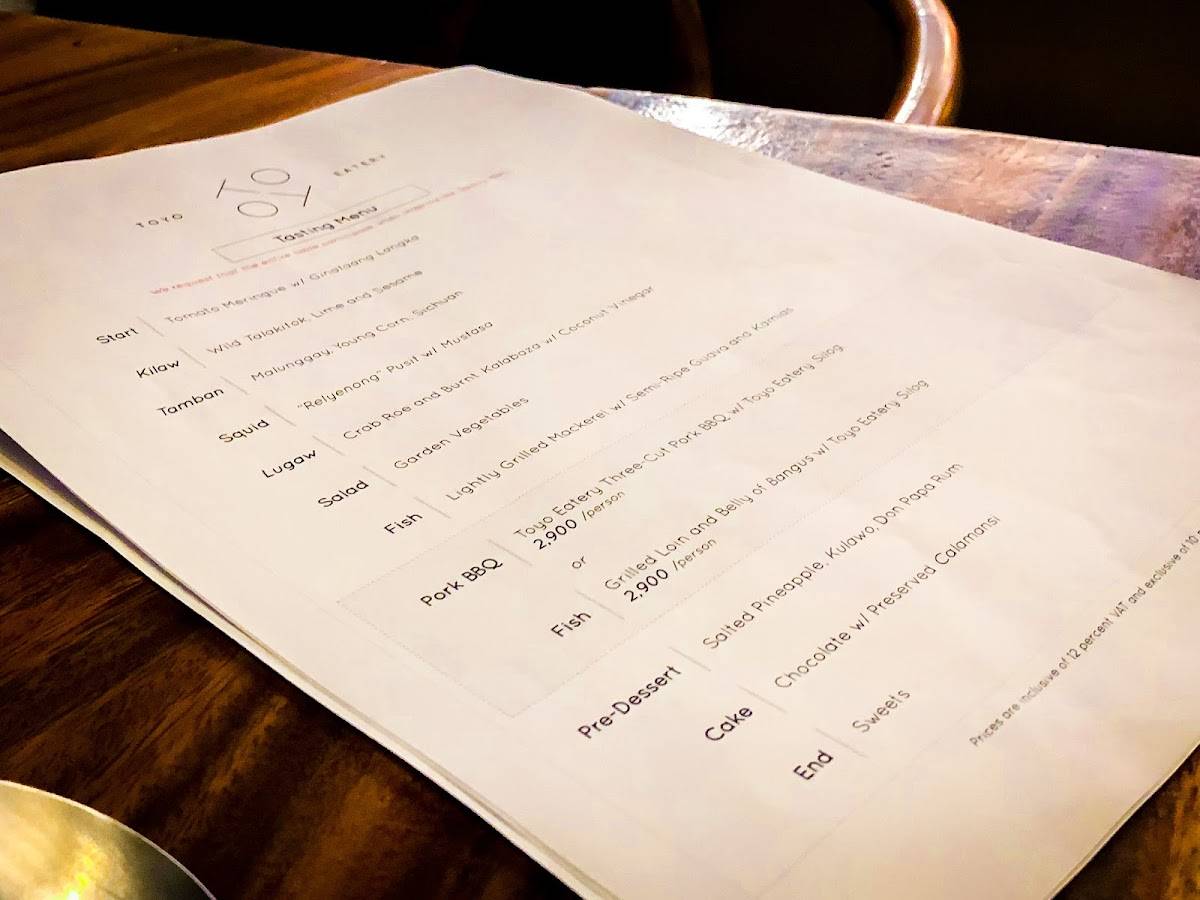 TOYO
TO
YO
EATERY
Tasting Menu
We request that the entire table
Start
Tomato Meringue w/ Ginataang Langka
Kilaw
Wild Talakitok, Lime and Sesame
Tamban
Malunggay, Young Corn, Sichuan
Squid
"Relyenong" Pusit w/ Mustasa
Lugaw
Crab Roe and Burnt Kalabaza w/ Coconut Vinegar
Salad
Garden Vegetables
Fish
Lightly Grilled Mackerel w/ Semi-Ripe Guava and Kamias
Pork BBQ
Toyo Eatery Three-Cut Pork BBQ w/ Toyo Eatery Silog
2,900 /person
or
Fish
Grilled Loin and Belly of Bangus w/ Toyo Eatery Silog
2,900 /person
Pre-Dessert
Salted Pineapple, Kulawo, Don Papa Rum
Cake
Chocolate w/ Preserved Calamansi
End
Sweets
Prices are inclusive of 12 percent VAT and exclusive of 10